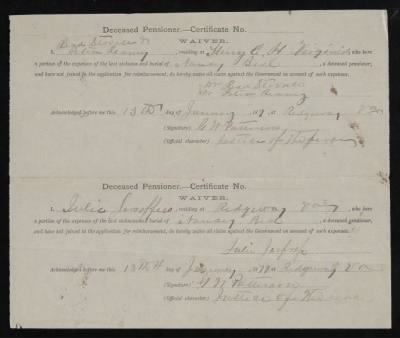 Deceased Pensioner.—Certificate No.
WAIVER.
I, residing at Henry C. H. Virginia who bore
a portion of the expenses of the last sickness and burial of Nancy a deceased pensioner,
and have not joined in the application for reimbursement, do hereby waive all claim against the Government on account of such expenses.
Acknowledged before me this 13th day of January Ridgeway Va
(Signature) Patterson
(Official character) Justice of the peace
Deceased Pensioner.—Certificate No.
WAIVER.
I, Julie residing at Ridgeway Va, who bore
a portion of the expenses of the last sickness and burial of Nancy a deceased pensioner,
and have not joined in the application for reimbursement, do hereby waive all claim against the Government on account of such expenses.
Julie
Acknowledged before me this 13th day of January Ridgeway Va
(Signature) Patterson
(Official character) Justice of the peace